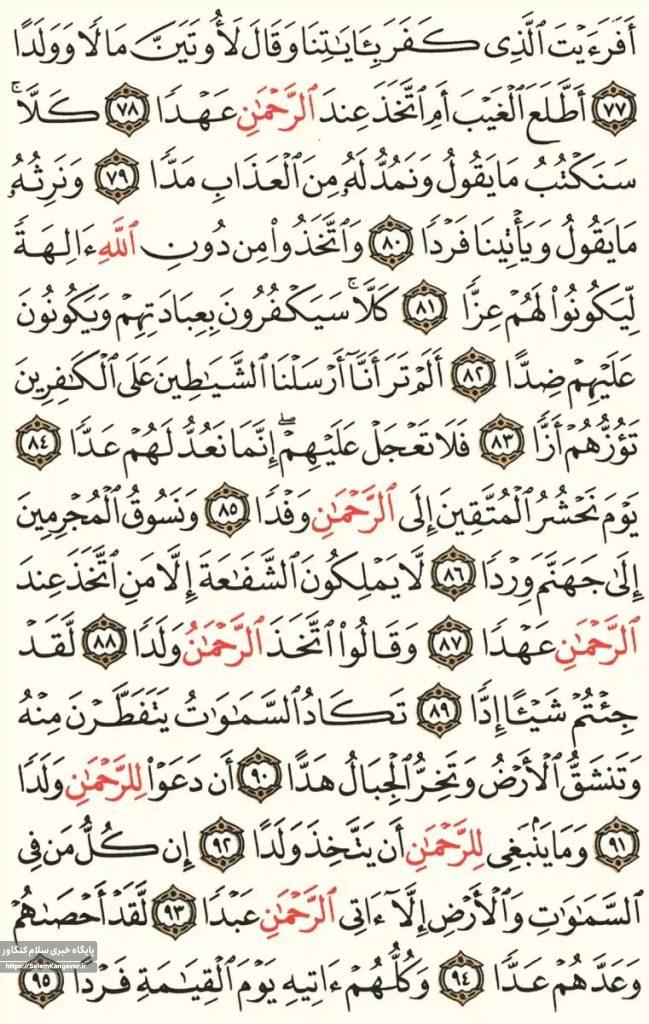 أَفَرَءَيۡتَ ٱلَّذِي كَفَرَ بِـَٔايَٰتِنَا وَقَالَ لَأُوتَيَنَّ مَالٗا وَوَلَدًا
٧٧ أَطَّلَعَ ٱلۡغَيۡبَ أَمِ ٱتَّخَذَ عِندَ ٱلرَّحۡمَٰنِ عَهۡدٗا ٧٨ كَلَّاۚ
سَنَكۡتُبُ مَا يَقُولُ وَنَمُدُّ لَهُۥ مِنَ ٱلۡعَذَابِ مَدّٗا ٧٩ وَنَرِثُهُۥ
مَا يَقُولُ وَيَأۡتِينَا فَرۡدٗا ٨٠ وَٱتَّخَذُواْ مِن دُونِ ٱللَّهِ ءَالِهَةٗ
لِّيَكُونُواْ لَهُمۡ عِزّٗا ٨١ كَلَّاۚ سَيَكۡفُرُونَ بِعِبَادَتِهِمۡ وَيَكُونُونَ
عَلَيۡهِمۡ ضِدًّا ٨٢ أَلَمۡ تَرَ أَنَّآ أَرۡسَلۡنَا ٱلشَّيَٰطِينَ عَلَى ٱلۡكَٰفِرِينَ
تَؤُزُّهُمۡ أَزّٗا ٨٣ فَلَا تَعۡجَلۡ عَلَيۡهِمۡۖ إِنَّمَا نَعُدُّ لَهُمۡ عَدّٗا ٨٤
يَوۡمَ نَحۡشُرُ ٱلۡمُتَّقِينَ إِلَى ٱلرَّحۡمَٰنِ وَفۡدٗا ٨٥ وَنَسُوقُ ٱلۡمُجۡرِمِينَ
إِلَىٰ جَهَنَّمَ وِرۡدٗا ٨٦ لَّا يَمۡلِكُونَ ٱلشَّفَٰعَةَ إِلَّا مَنِ ٱتَّخَذَ عِندَ
ٱلرَّحۡمَٰنِ عَهۡدٗا ٨٧ وَقَالُواْ ٱتَّخَذَ ٱلرَّحۡمَٰنُ وَلَدٗا ٨٨ لَّقَدۡ
جِئۡتُمۡ شَيۡـًٔا إِدّٗا ٨٩ تَكَادُ ٱلسَّمَٰوَٰتُ يَتَفَطَّرۡنَ مِنۡهُ
وَتَنشَقُّ ٱلۡأَرۡضُ وَتَخِرُّ ٱلۡجِبَالُ هَدًّا ٩٠ أَن دَعَوۡاْ لِلرَّحۡمَٰنِ وَلَدٗا
٩١ وَمَا يَنۢبَغِي لِلرَّحۡمَٰنِ أَن يَتَّخِذَ وَلَدًا ٩٢ إِن كُلُّ مَن فِي
ٱلسَّمَٰوَٰتِ وَٱلۡأَرۡضِ إِلَّآ ءَاتِي ٱلرَّحۡمَٰنِ عَبۡدٗا ٩٣ لَّقَدۡ أَحۡصَىٰهُمۡ
وَعَدَّهُمۡ عَدّٗا ٩٤ وَكُلُّهُمۡ ءَاتِيهِ يَوۡمَ ٱلۡقِيَٰمَةِ فَرۡدًا ٩٥
پایگاه خبری سلام کنگاور
https://SalamKangavar.ir